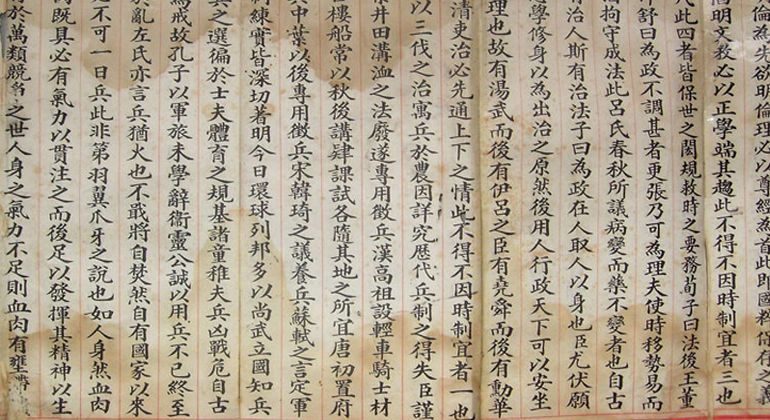 倫為先欲明倫理必以尊經為首此即國粹保存之義
昌明文教必以正學端其趨此不得不因時制宜者三也
代此四者皆保世之閎規救時之要務荀子曰法後王董
舒曰為政不調甚者更張乃可為理夫使時移勢易而
拘守成法此呂氏春秋所譏病變而藥不變者也自古
有治人斯有治法子曰為政在人取人以身也臣尤伏願
學修身以為出治之原然後用人行政天下可以安坐
理也故有湯武而後有伊呂之臣有堯舜而後有勳華
清吏治必先通上下之情此不得不因時制宜者一也
以三代之治寓兵於農因詳究歷代兵制之得失臣謹
井田溝洫之法廢遂專用徵兵漢高祖設輕車騎士材
樓船常以秋後講肄課試各隨其地之所宜唐初置府
中葉以後專用徵兵宋韓琦之議養兵蘇軾之言定軍
制練實皆深切著明今日環球列邦多以尚武立國知兵
之選徧於士夫體育之規基諸童稚夫兵凶戰危自古
為戒故孔子以軍旅未學辭衛靈公誠以用兵不已終至
於亂左氏亦言兵猶火也不戢將自焚然自有國家以來
之不可一日兵此非第羽翼爪牙之說也如人身然血肉
既具必有氣力以貫注之而後足以發揮其精神以生
於萬類競爭之世人身之氣力不足則血肉有壅